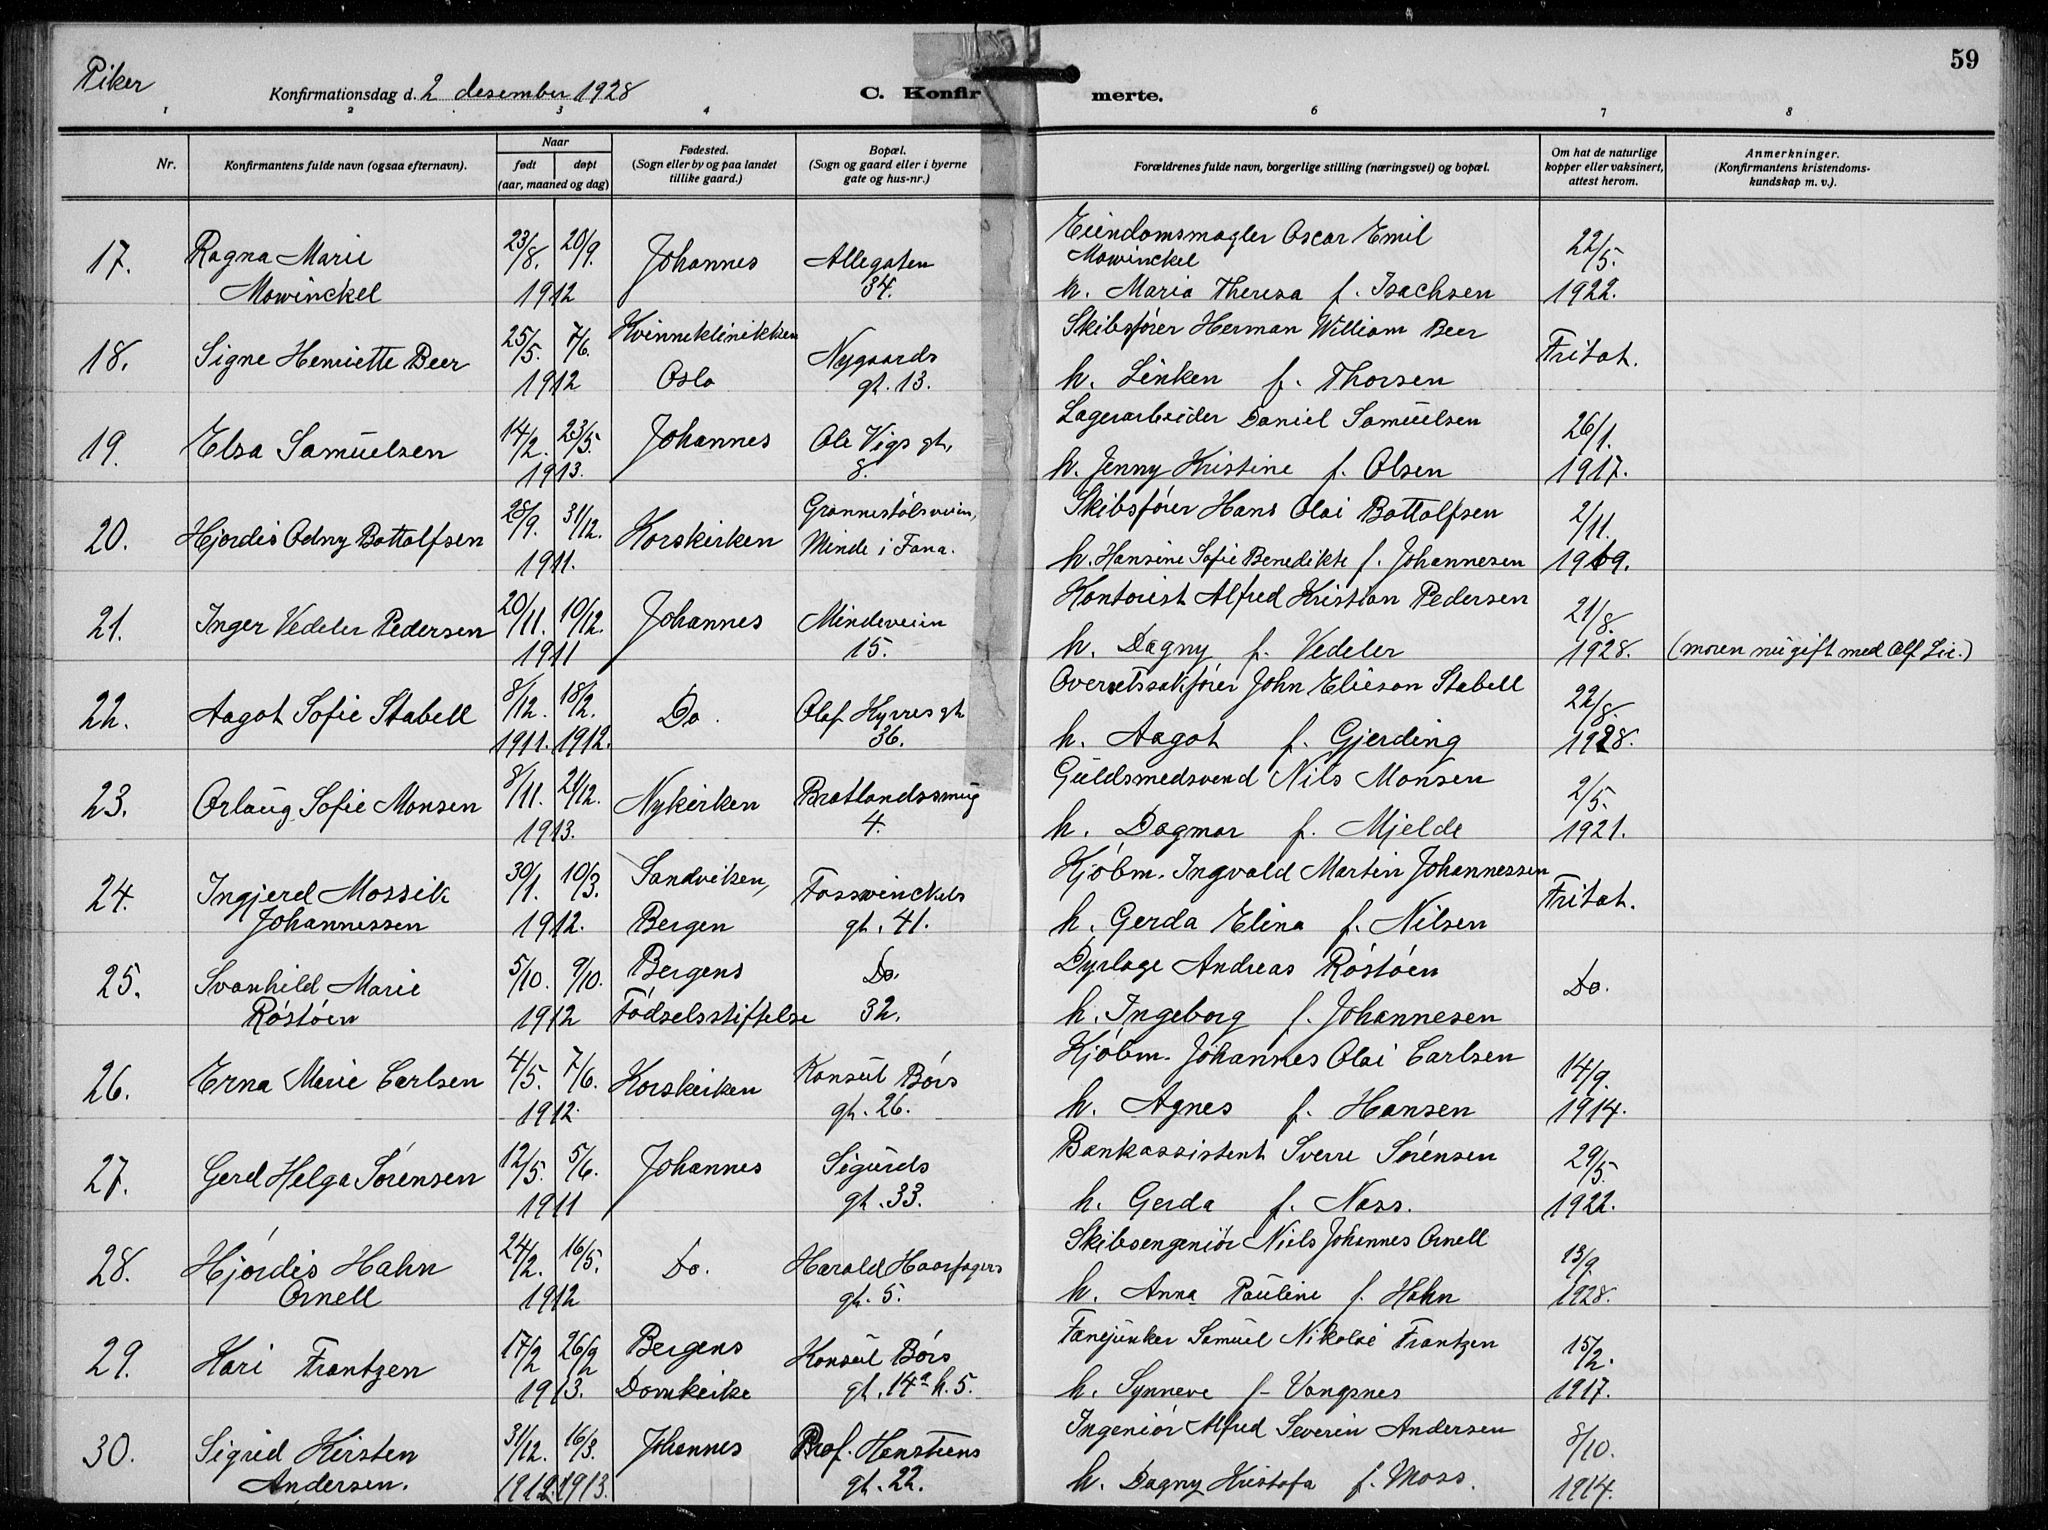 59
Piker
Konfirmationsdag d. 2 desember 1928
C. Konfir merte.
1 2 3 4 6 7 8
Nr.
Konfirmantens fulde navn (ogsaa efternavn).
Naar
født døpt
(aar, maaned og dag)
Fødested.
(Sogn eller by og paa landet
tillike gaard.)
Bopæl.
(Sogn og gaard eller i byerne
gate og hus-nr.)
Forældrenes fulde navn, borgerlige stilling (næringsvei) og bopæl.
Om hat de naturlige
kopper eller vaksinert,
attest herom.
Anmerkninger.
(Konfirmantens kristendoms-
kundskap m. v.).
17. Ragna Marie 23/8. 20/9. Johannes Allegaten Eiendomsmægler Oscar Emil 22/5.
Mowinckel
Mowinckel 1912 34. h. Maria Theresa f. Isachsen 1922.
18. Signe Henriette Beer 25/5. 7/6. Kvinneklinikken Nygaards Skibsfører Herman William Beer Fritat.
1912 Oslo gt. 13. h. Linken f. Thorsen
19. Elsa Samuelsen 14/2. 23/5. Johannes Ole Vigs gt. Lagerarbeider Daniel Samuelsen 26/1.
1913. 8. h. Jenny Kristine f. Olsen 1917.
20. Hjordis Odny Bottolfsen 28/9. 31/12. Korskirken Grønnestølsveien, Skibsfører Hans Olai Bottolfsen 2/11.
1911. Minde i Fana. h. Hansine Sofie Benedikte f. Johannesen 1919.
21. Inger Vedeler Pedersen 20/11. 10/12. Johannes Mindeveien Kontorist Alfred Kristian Pedersen 21/8.
1911 15. h. Dagny f. Vedeler 1928. (moren nu gift med Alf Lie.)
22. Aagot Sofie Stabell 8/12. 18/2. Do. Olaf Kyrres gt Overretssakfører John Elieson Stabell 22/8.
1911. 1912. 36. h. Aagot f. Gjerding 1928.
23. Orlaug Sofie Monsen 8/11. 21/12. Nykirken Bratlandssmug Guldsmedsvend Nils Monsen 2/5.
1913. 4. h. Dagmar f. Mjelde 1921.
24. Ingjerd Mossik 30/1. 10/3. Sandviken, Fosswinckels Kjøbm. Ingvald Martin Johannessen Fritat.
Johannessen 1912. Bergen gt. 41. h. Gerda Elina f. Nilsen
25. Svanhild Marie 5/10. 9/10. Bergens Do. Dyrlæge Andreas Røstøen Do.
Røstøen 1912 Fødselsstiftelse 32. h. Ingeborg f. Johannesen
26. Erna Marie Carlsen 4/5. 7/6. Korskirken Konsul Børs Kjøbm. Johannes Olai Carlsen 14/9.
1912. gt. 26. h. Agnes f. Hansen 1914.
27. Gerd Helga Sørensen 12/5. 5/6. Johannes Sigurds Bankassistent Sverre Sørensen 29/5.
1911 gt. 33. h. Gerda f. Næss. 1922.
28. Hjørdis Hahn 24/2. 16/5. Do. Harald Haarfagers Skibsengeniør Niels Johannes Ornell 13/9.
Ornell 1912 gt. 5. h. Anna Pauline f. Hahn 1928.
29. Kari Frantzen 17/2 26/2 Bergens Konsul Børs Fanejunker Samuel Nikolai Frantzen 15/2.
1913. Domkirke gt. 14a h. 5. h. Synneve f. Vangsnes 1917.
30. Sigrid Kirsten 31/12. 16/3. Johannes Prof. Hansteens Ingeniør Alfred Severin Andersen 8/10.
Andersen. 1912. 1913. gt. 22. h. Dagny Kristofa f. Moss. 1914.